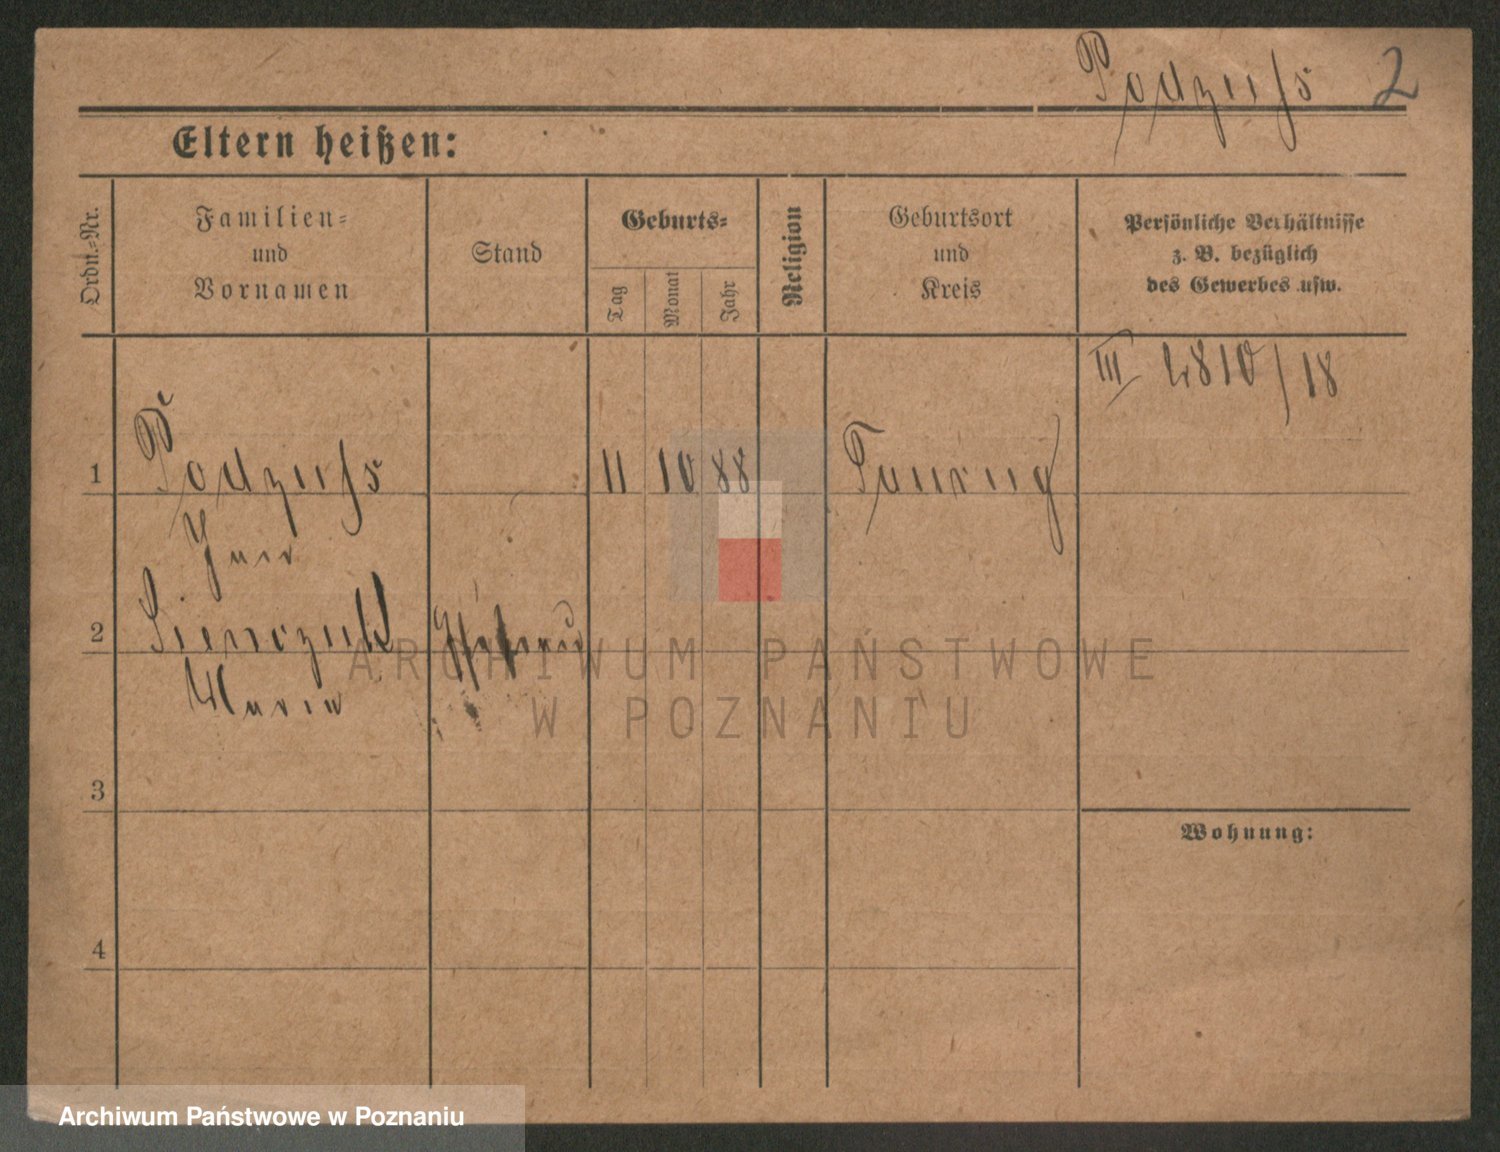 Podzuss 2
Eltern heißen:
Ordn.-Nr.
Familien=
und
Vornamen
Stand
Geburts=
Tag
Monat
Jahr
Religion
Geburtsort
und
Kreis
Persönliche Verhältnisse
z. B. bezüglich
des Gewerbes usw.
III 4810/18
1 Podzuss 11 10 88
2
Maria
3
4
Wohnung:
ARCHIWUM PAŃSTWOWE
W POZNANIU
Archiwum Państwowe w Poznaniu